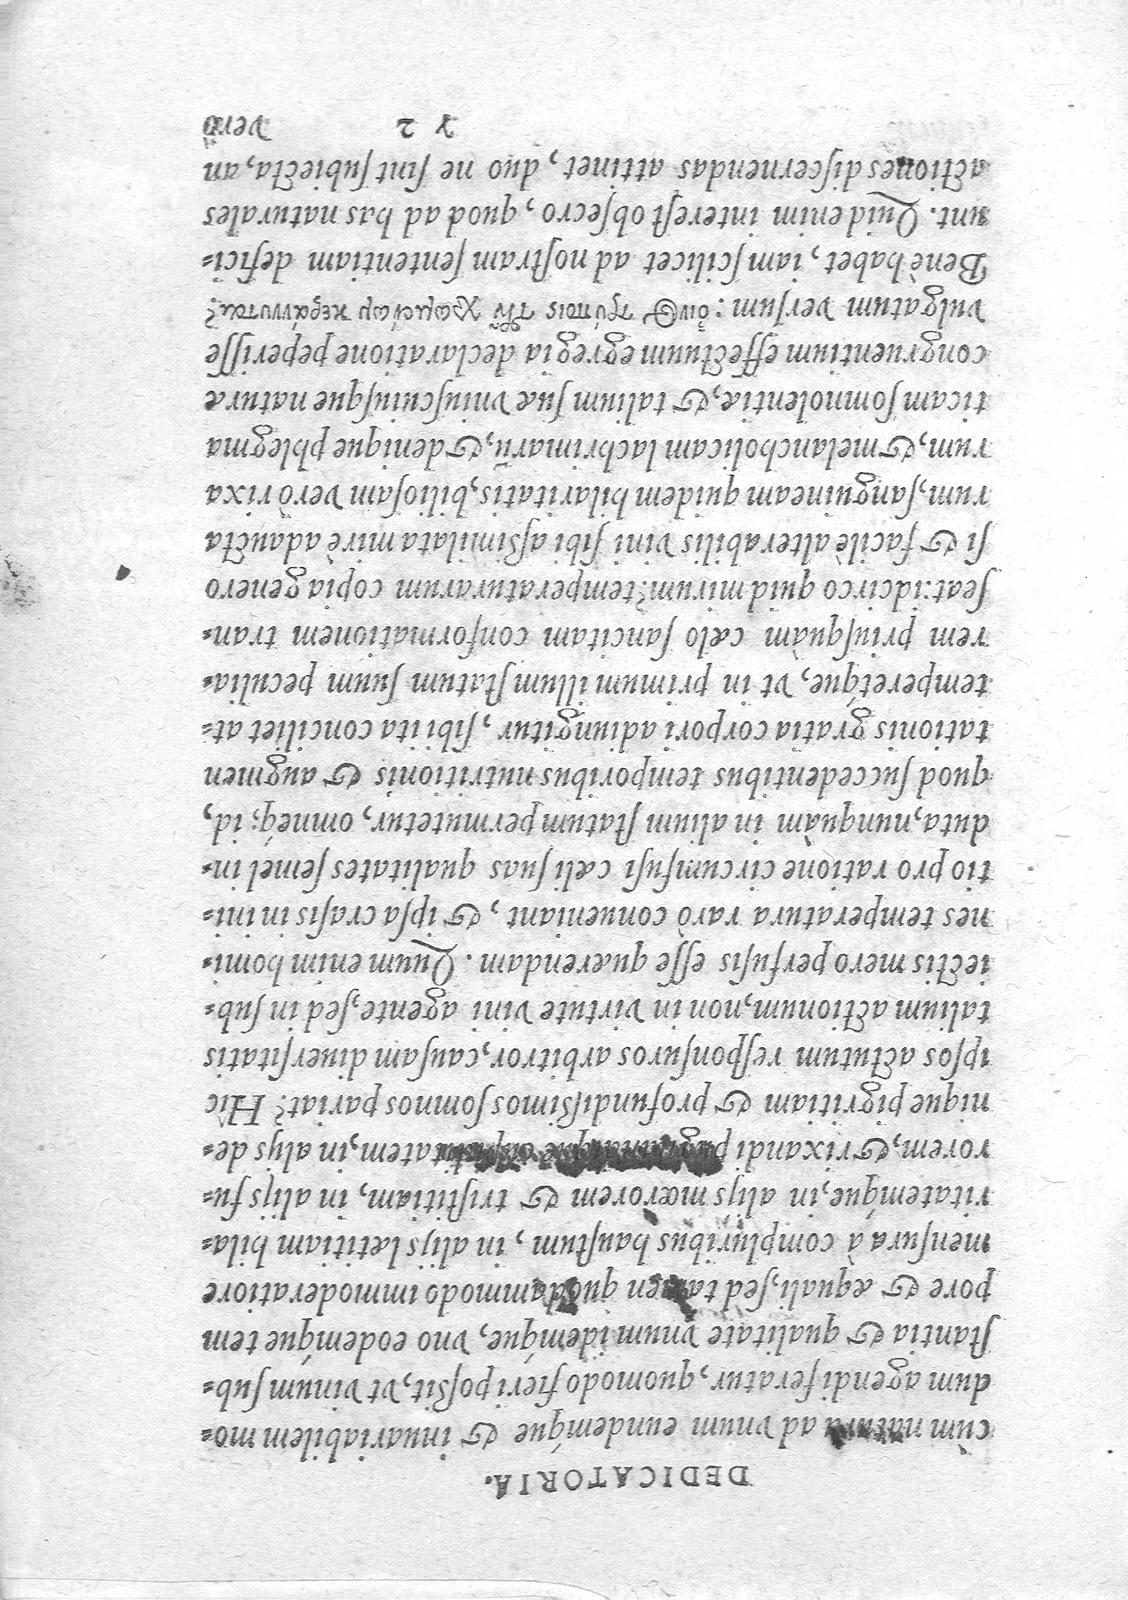 DEDICATORIA.
cùm natura ad vnum eundemq́ue & inuariabilem mo-
dum agendi feratur, quomodo fieri poßit, vt vinum sub-
ſtantia & qualitate vnum idemq́ue, vno eodemq́ue tem
pore & æquali, ſed tamen quodammodo immoderatiore
menſura à compluribus hauſtum, in alijs lætitiam hila-
ritatemq́ue, in alijs mœrorem & triſtitiam, in alijs fu-
rorem, & rixandi in alijs de-
nique pigritiam & profundißimos ſomnos pariat? Hîc
ipſos actutum reſponſuros arbitror, cauſam diuerſitatis
talium actionum, non in virtute vini agente, ſed in ſub-
iectis mero perfuſis eſſe quærendam. Quum enim homi-
nes temperatura rarò conueniant, & ipſa craſis in ini-
tio pro ratione circumfuſi cæli ſuas qualitates ſemel in-
duta, nunquàm in alium ſtatum permutetur, omneq́; id,
quod ſuccedentibus temporibus nutritionis & augmen
tationis gratia corpori adiungitur, ſibi ita conciliet at-
temperetq́ue, vt in primum illum ſtatum ſuum peculia-
rem priuſquàm cælo ſancitam conformationem tran-
ſeat: idcirco quid mirum? temperaturarum copia genero
ſi & facilè alterabilis vini ſibi aßimilata mirè adaucta
rum, ſanguineam quidem hilaritatis, bilioſam verò rixa
rum, & melancholicam lachrimarũ, & denique phlegma
ticam ſomnolentiæ, & talium ſuæ vniuſcuiuſque naturæ
congruentium effectuum egregia declaratione peperiſſe
vulgatum verſum: οἶνος τρόποις τῶν χρωμένων κεράννυται?
Benè habet, iam ſcilicet ad noſtram ſententiam defici-
unt. Quid enim intereſt obſecro, quod ad has naturales
actiones diſcernendas attinet, duo ne ſint ſubiecta, an
γ 2 verò